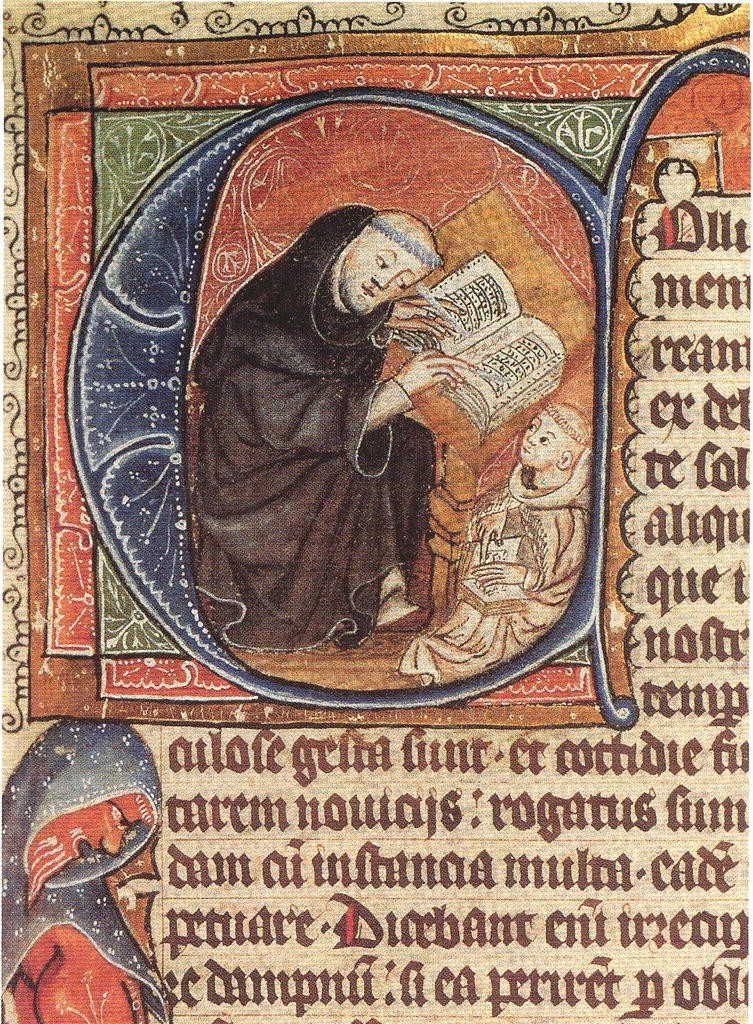 olli
men
rean
ex de
te sol
aliqu
que i
nostr
temp
culose gesta sunt · et cottidie fi
tarem nouicijs : rogatus sum
dam cū instancia multa · eadē
petuare · Dicebant enī irrecup
le dampnū : si ea perirēt p obli